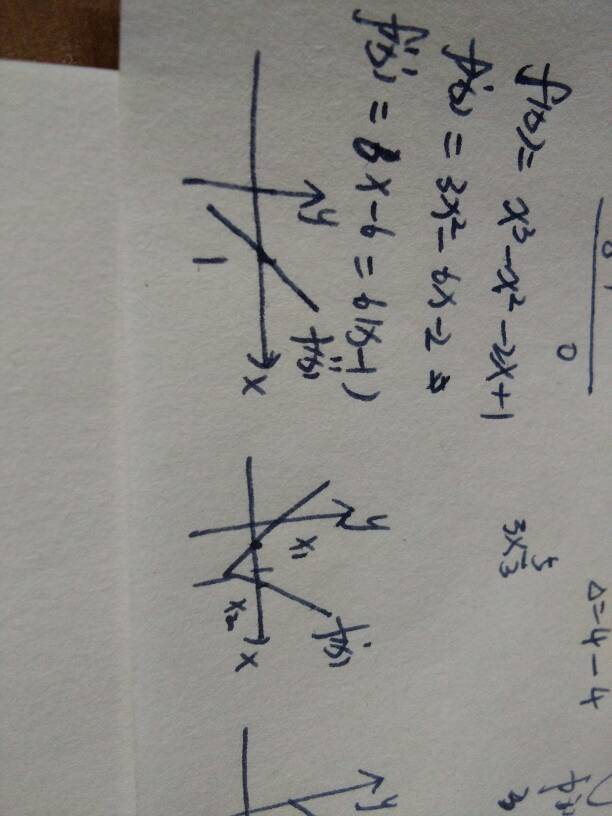 f(x) = x³ - x² - 2x + 1
f'(x) = 3x² - 6x - 2
f''(x) = 6x - 6 = 6(x-1)
y
1
f''(x)
x
Δ = 4 - 4
y
x₁
x₂
f'(x)
x
y